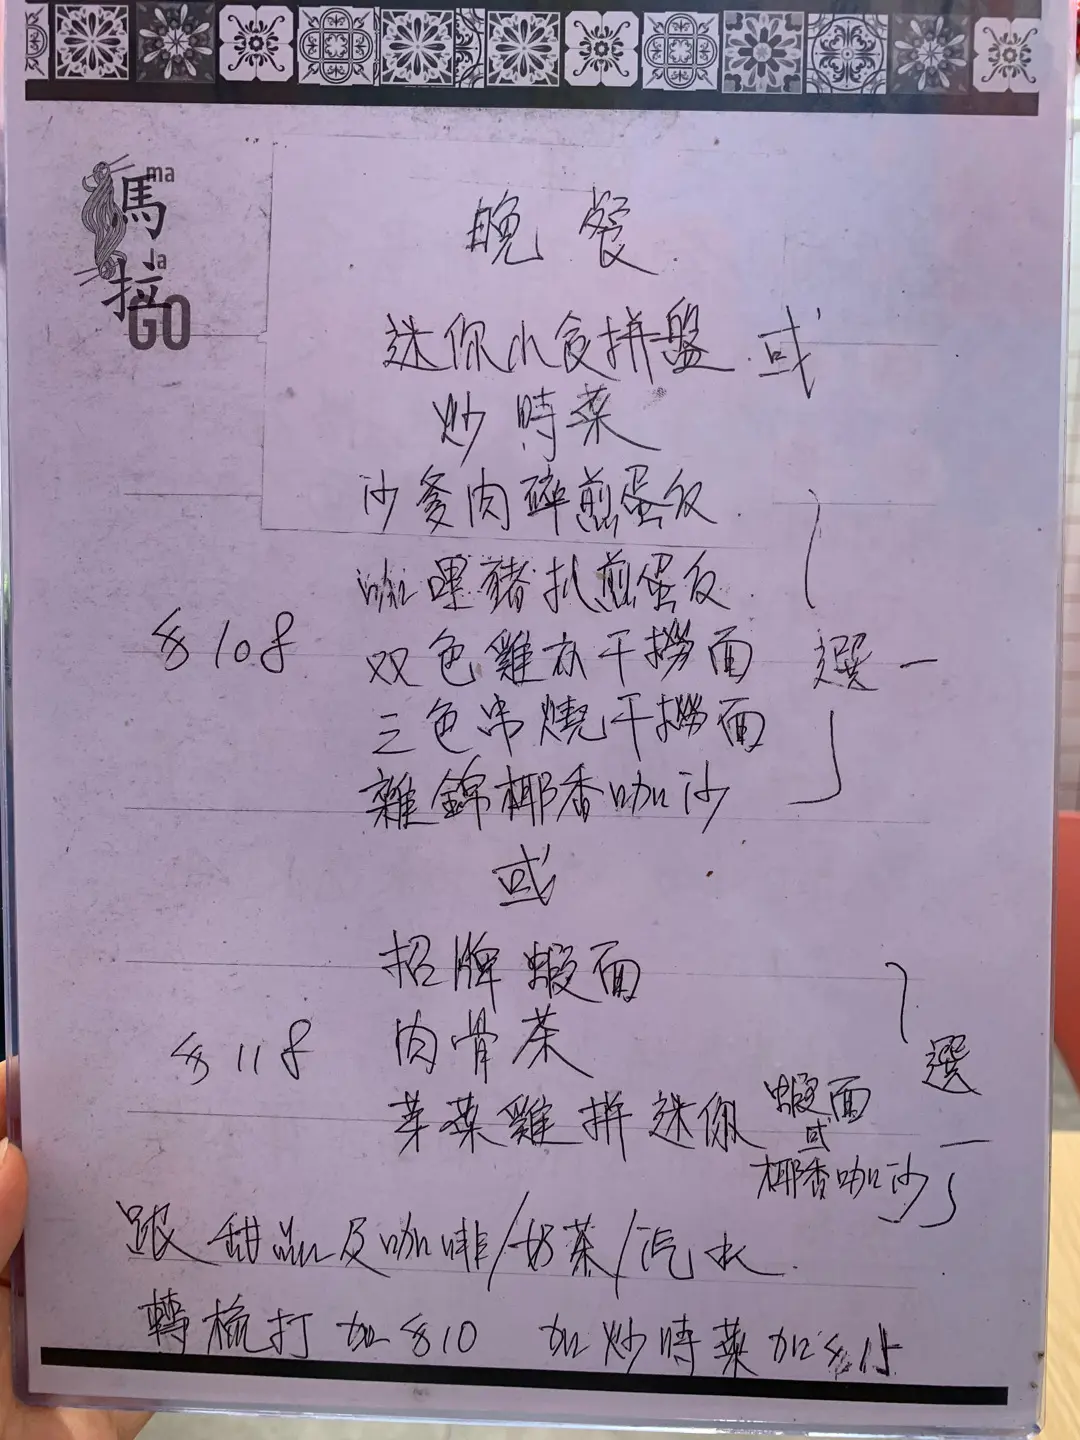 馬 ma
拉 la
GO
晚餐
迷你小食拼盤 或
炒時菜
沙爹肉碎煎蛋反
咖哩豬扒煎蛋反
$108 双色雞衣干撈面 選一
三色串燒干撈面
雜錦椰香咖沙
或
招牌蝦面
$118 肉骨茶 選一
芽菜雞拼迷你 蝦面
或
椰香咖沙
跟甜品及咖啡/奶茶/汽水
轉梳打加$10 加炒時菜加$15